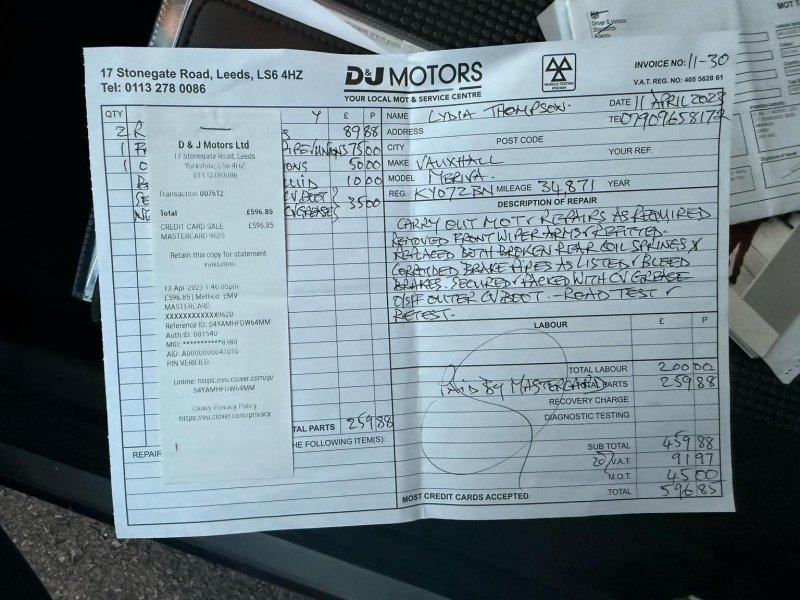 17 Stonegate Road, Leeds, LS6 4HZ
Tel: 0113 278 0086
D&J MOTORS
YOUR LOCAL MOT & SERVICE CENTRE
VEHICLE TESTING STATION
INVOICE NO: 11-30
V.A.T. REG. NO: 405 5628 61
QTY £ P
2 R 89 88
1 PIPE/UNIONS 75 00
1 50 00
10 00
CV BOOT
CV GREASE 35 00
TAL PARTS 259 88
REPAIR HE FOLLOWING ITEM(S):
D & J Motors Ltd
17 Stonegate Road, Leeds
Yorkshire, LS6 4HZ
01132780086
Transaction 007612
Total £596.85
CREDIT CARD SALE £596.85
MASTERCARD 9620
Retain this copy for statement
validation
13-Apr-2023 1:46:05pm
£596.85 | Method: EMV
MASTERCARD
XXXXXXXXXXXX9620
Reference ID: S4YAMHFDW64MM
Auth ID: 081540
MID: **********8380
AID: A0000000041010
PIN VERIFIED
Online: https://eu.clover.com/p/
S4YAMHFDW64MM
Clover Privacy Policy
https://eu.clover.com/privacy
NAME LYDIA THOMPSON. DATE 11 APRIL 2023
ADDRESS TEL 07909658172
CITY POST CODE
MAKE VAUXHALL YOUR REF.
MODEL MERIVA
REG. KY07ZBN MILEAGE 34,871 YEAR
DESCRIPTION OF REPAIR
CARRY OUT MOT & REPAIRS AS REQUIRED
REMOVED FRONT WIPER ARMS & REFITTED.
REPLACED BOTH BROKEN REAR COIL SPRINGS &
CORRODED BRAKE PIPES AS LISTED & BLEED
BRAKES. SECURED & PACKED WITH CV GREASE
O/S/F OUTER CV BOOT. - ROAD TEST &
RETEST.
LABOUR £ P
TOTAL LABOUR 200 00
PAID BY MASTERCARD PARTS 259 88
RECOVERY CHARGE
DIAGNOSTIC TESTING
SUB TOTAL 459 88
20% V.A.T. 91 97
M.O.T. 45 00
MOST CREDIT CARDS ACCEPTED TOTAL 596 85
Driver & Vehicle
Standards
Agency
MOT T